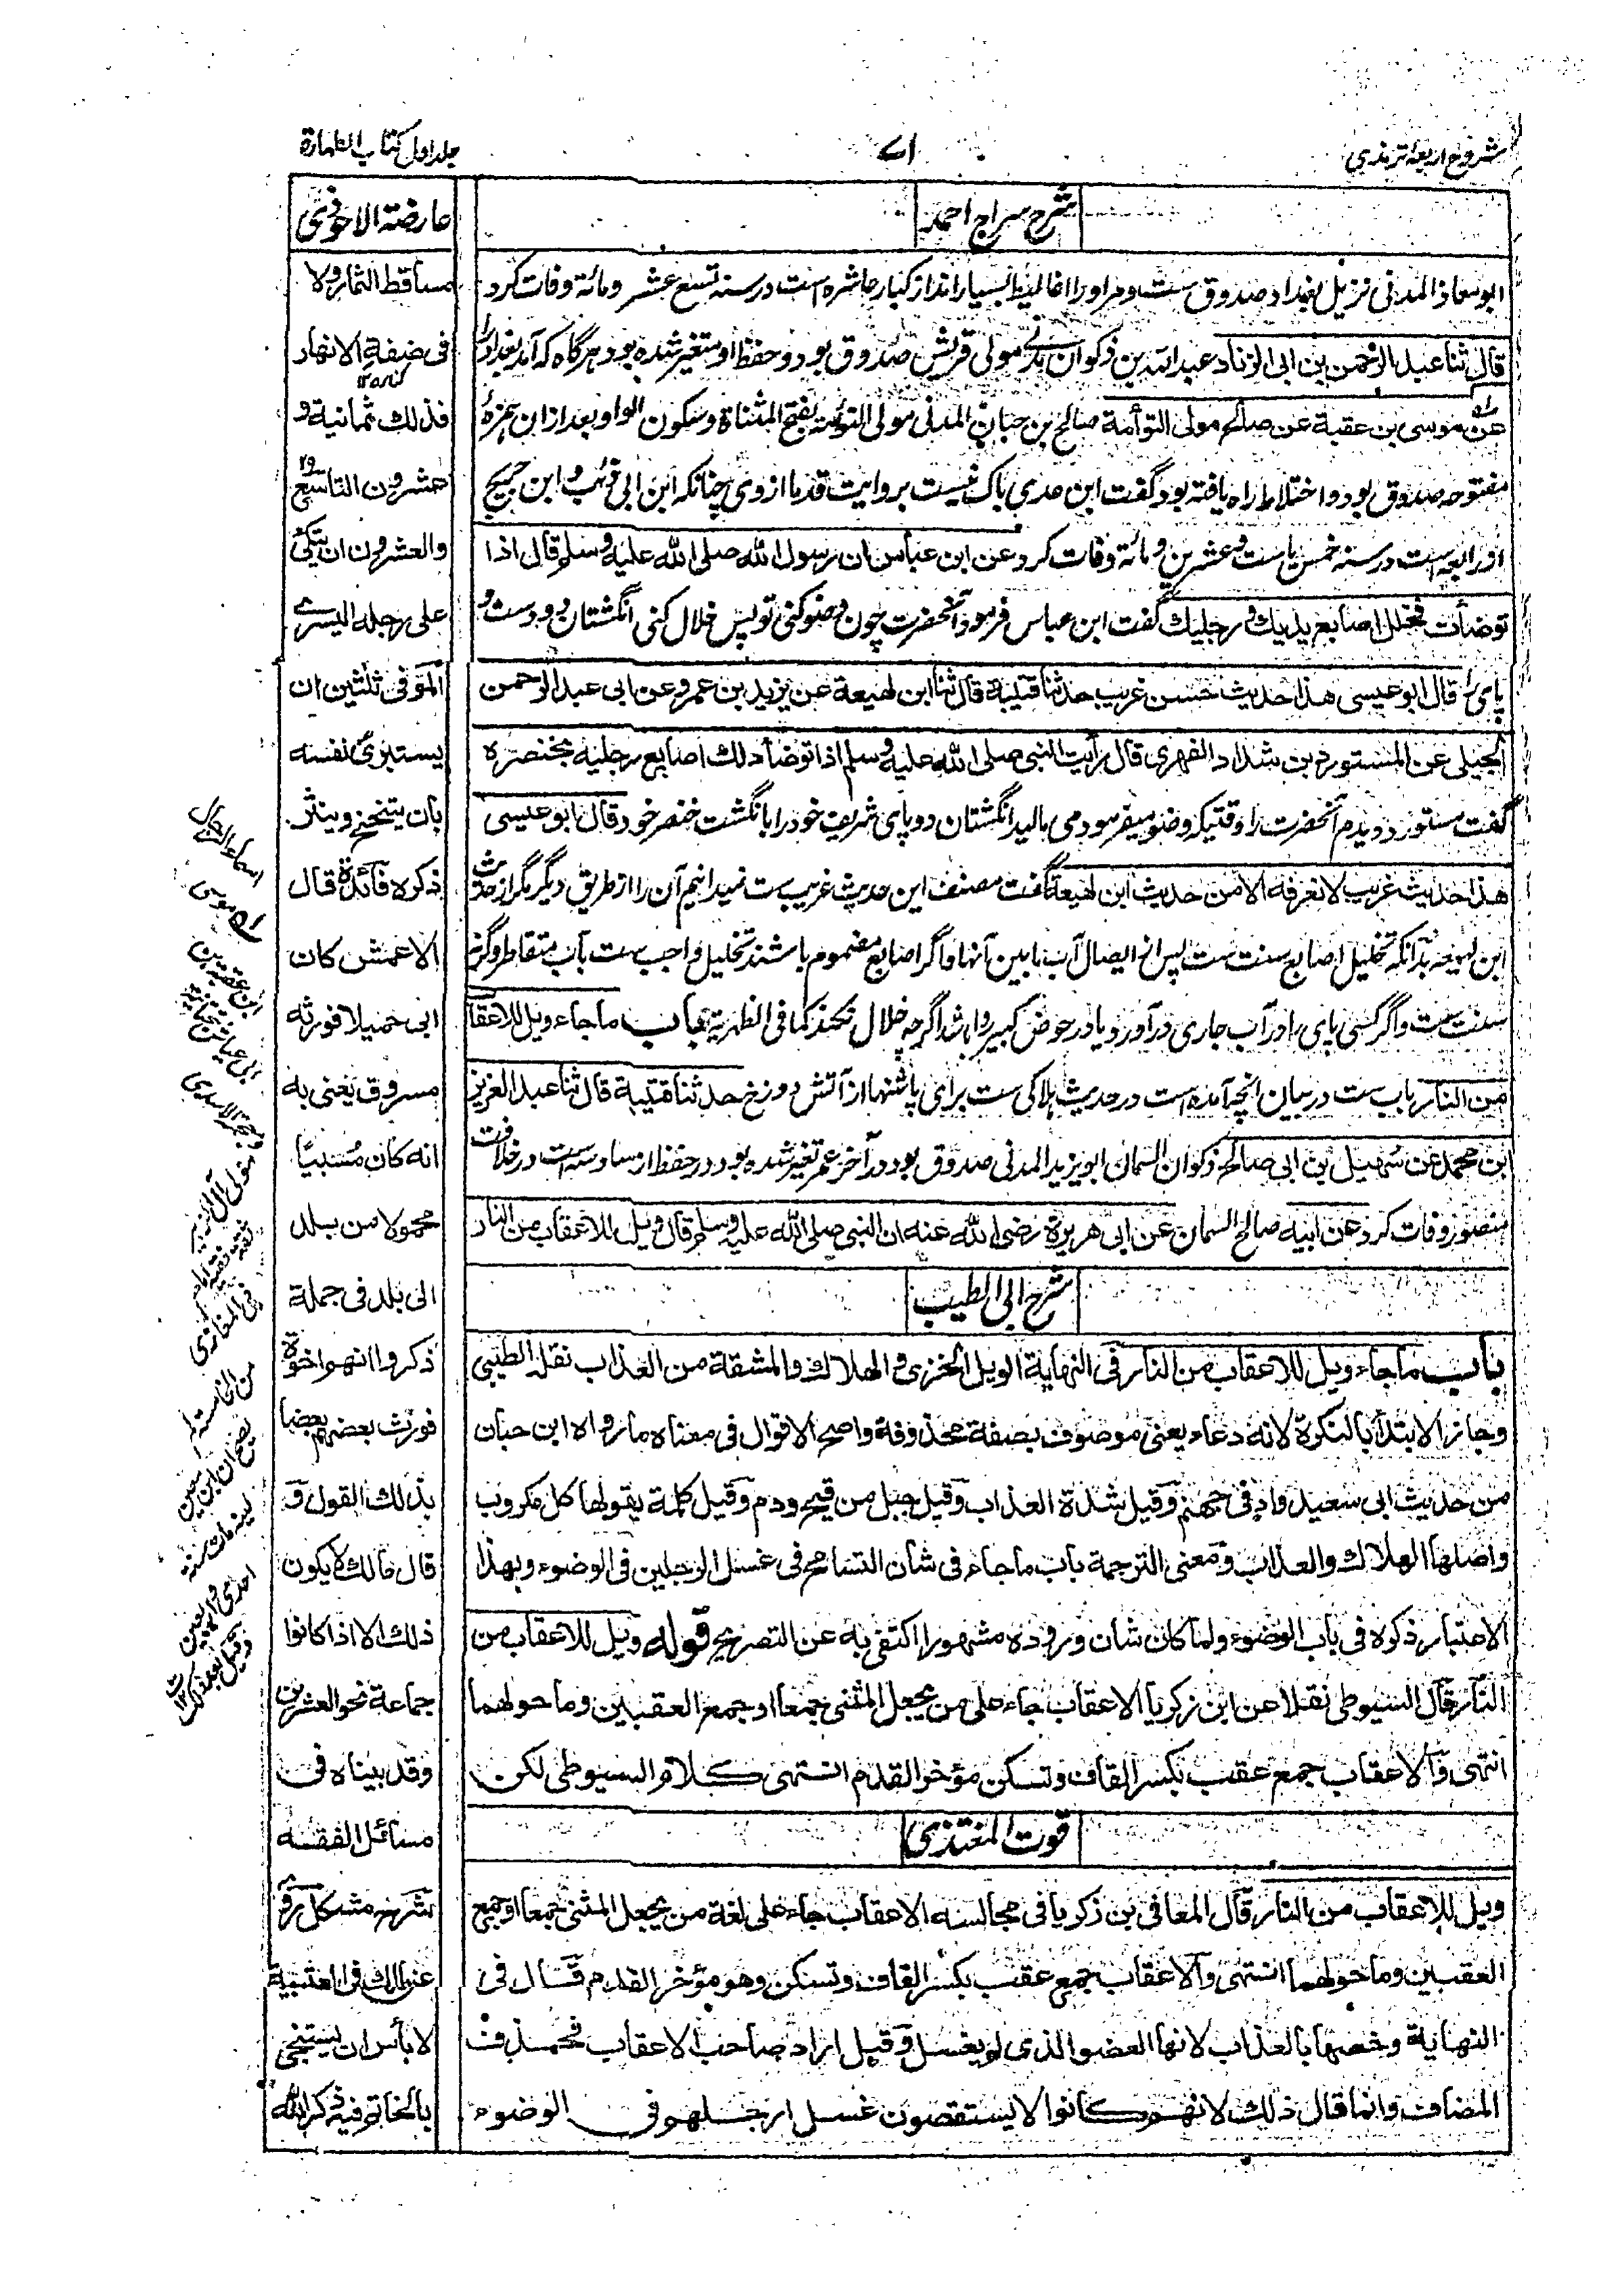 شروح اربعۂ ترمذی
۷۱
جلد اول کتاب الطهارة
شرح سراج احمد
ابو معاذ المدنی نزیل بغداد صدوق ست و مر او را اغالیط بسیار اند از کبار عاشره است در سنه تسع عشر و مائة وفات کرد
قال ثنا عبد الرحمن بن ابی الزناد عبد الله بن ذکوان مولی قریش صدوق بود و حفظ او متغیر شده بود هرگاه که آمد بغداد را
عن موسی بن عقبة عن صالح مولی التوأمة صالح بن المدنی مولی التوئمه بفتح المثناة وسکون الواو بعد ازان همزۂ
مفتوحه صدوق بود و اختلاط راه یافته بود گفت ابن عدی باک نیست بروایت قدما از وی چنانکه ابن ابی ذئب و ابن جریج
او رابعه است در سنه خمس یا ست وعشرین و مائة وفات کرد عن ابن عباس ان رسول الله صلی الله علیه وسلم قال اذا
توضأت فخلل اصابع یدیك و رجلیك گفت ابن عباس فرمود آنحضرت چون وضو کنی تو پس خلال کنی انگشتان دو دست و
پای قال ابو عیسی هذا حدیث حسن غریب حدثنا قتیبة قال ثنا ابن لهیعة عن یزید بن عمرو عن ابی عبد الرحمن
الحبلی عن المستورد بن شداد الفهری قال رأیت النبی صلی الله علیه وسلم اذا توضأ دلك اصابع رجلیه بخنصره
گفت مستورد دیدم آنحضرت را وقتیکه وضو میفرمود می مالید انگشتان دو پای شریف خود را بانگشت خنصر خود قال ابو عیسی
هذا حدیث غریب لا نعرفه الا من حدیث ابن لهیعة گفت مصنف این حدیث غریب ست نمیدانیم آن را از طریق دیگر مگر از حدیث
ابن لهیعه بدانکه تخلیل اصابع سنت ست پس از ایصال آب مابین آنها و اگر اصابع مضموم باشند تخلیل واجب ست بآب متقاطر وگرنه
سنت ست و اگر کسی پای را در آب جاری در آورد یا در حوض کبیر روا باشد اگرچه خلال نکند کما فی الظهیریة باب ما جاء ویل للاعقاب
من النار باب ست در بیان انچه آمده است در حدیث هلاکی ست برای پاشنها از آتش دوزخ حدثنا قتیبة قال ثنا عبد العزیز
ابن محمد عن سهیل بن ابی صالح ذکوان السمان ابو یزید المدنی صدوق بود در آخر عمر تغیر شده بود در حفظ از سادسه است در خلافت
منصور وفات کرد عن ابیه صالح السمان عن ابی هریرة رضی الله عنه ان النبی صلی الله علیه وسلم قال ویل للاعقاب من النار
شرح ابی الطیب
باب ما جاء ویل للاعقاب من النار فی النهایة الویل الخزی و الهلاك والمشقة من العذاب نقله الطیبی
وجاز الابتدأ بالنکرة لانه دعاء یعنی موصوف بصفة محذوفة واصح الاقوال فی معناه ما رواه ابن حبان
من حدیث ابی سعید واد فی جهنم وقیل شدة العذاب وقیل جبل من قیح ودم وقیل کلمة یقولها کل مکروب
واصلها الهلاك والعذاب ومعنی الترجمة باب ما جاء فی شأن التسامح فی غسل الرجلین فی الوضوء وبهذا
الاعتبار ذکره فی باب الوضوء ولما کان شان وروده مشهورا اکتفی به عن التصریح قوله ویل للاعقاب من
النار قال السیوطی نقلا عن ابن زکریا الاعقاب جاء علی من یجعل المثنی جمعا او جمع العقبین وما حولهما
انتهی والاعقاب جمع عقب بکسر القاف وتسکن مؤخر القدم انتهی کلام السیوطی لکن
قوت المغتذی
ویل للاعقاب من النار قال المعافی بن زکریا فی مجالسه الاعقاب جاء علی لغة من یجعل المثنی جمعا او جمع
العقبین وما حولهما انتهی والاعقاب جمع عقب بکسر القاف وتسکن وهو مؤخر القدم قال فی
النهایة وخصها بالعذاب لانها العضو الذی لم یغسل وقیل اراد صاحب الاعقاب فحذف
المضاف وانما قال ذلك لانهم کانوا لا یستقصون غسل ارجلهم فی الوضوء
عارضة الاحوذی
مساقط الثمار ولا
فی ضفة الانهار
کناره ۱۲
فذلك ثمانیة و
عشرون التاسع
والعشرون ان یتکئ
علی رجله الیسرے
الموفی ثلثین ان
یستبرئ نفسه
بان یتنحنح وینثر
ذکره فائدة قال
الاعمش کان
ابی حمیلا فورثه
مسروق یعنی به
انه کان مسبیا
محمولا من بلد
الی بلد فی جملة
ذکروا انهم اخوة
فورث بعضهم بعضا
بذلك القول و
قال مالك لا یکون
ذلك الا اذا کانوا
جماعة نحو العشرین
وقد بیناه فی
مسائل الفقه
شرح مشکل روی
عن مالك فی العتبیة
لا بأس ان یستنجی
بالخاتم فیه ذکر الله
اسماء الرجال
موسی
ابن عقبة بن
ابی عیاش
الاسدی
مولی آل الزبیر
ثقة فقیه امام
فی المغازی
من الخامسة لم
یصح ان ابن معین
لینه مات سنة
احدی واربعین
وقیل بعد ذلك ۱۲